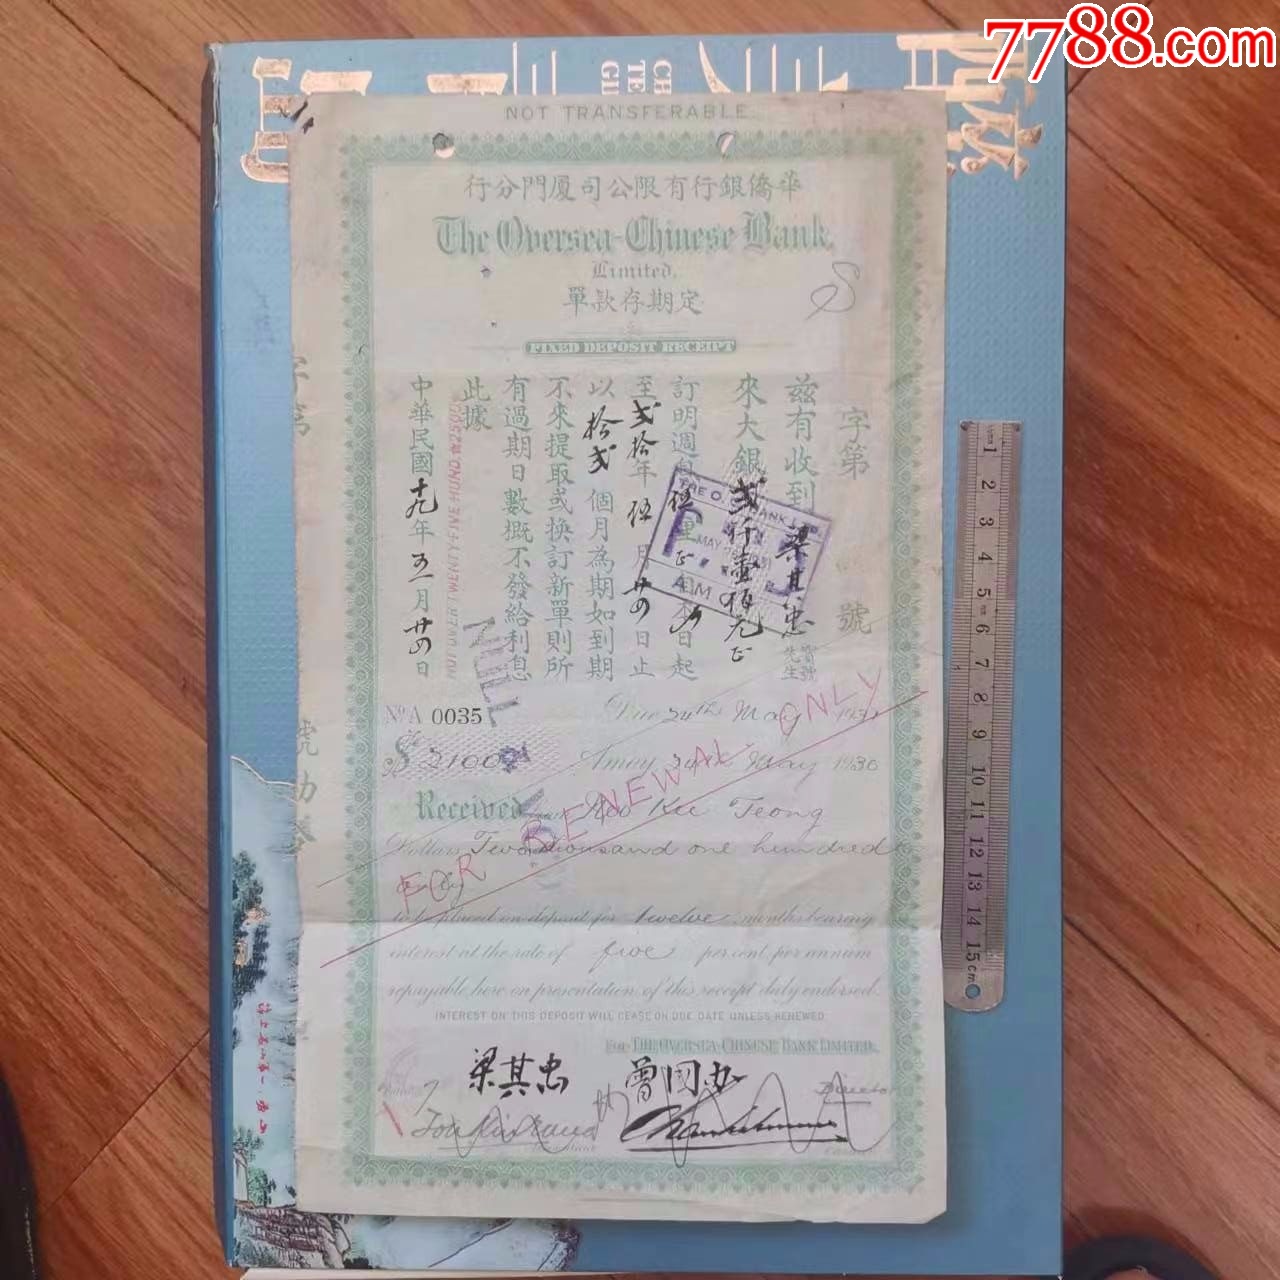 7788.com
NOT TRANSFERABLE.
行分門厦司公限有行銀僑華
The Oversea-Chinese Bank,
Limited.
單款存期定
FIXED DEPOSIT RECEIPT
字第
號
茲有收到 梁其忠 寶號 先生
來大銀 貳仟壹佰元正
訂明週息 伍 厘正
至貳拾年伍月廿四日止
以拾貳個月為期如到期
不來提取或換訂新單則所
有過期日數概不發給利息
此據
中華民國十九年五月廿四日
NOT OVER TWENTY-FIVE HUND. $2500
NULL
No. A 0035
Due 24th May 1931
$ 2100
Amoy 24th May 1930
Received
Kee Teong
Dollars Two thousand one hundred
only
FOR RENEWAL ONLY
to be placed on deposit for twelve months bearing
interest at the rate of five per cent per annum
repayable here on presentation of this receipt duly endorsed.
INTEREST ON THIS DEPOSIT WILL CEASE ON DUE DATE UNLESS RENEWED
For THE OVERSEA-CHINESE BANK LIMITED.
梁其忠 曾國办
1 2 3 4 5 6 7 8 9 10 11 12 13 14 15cm